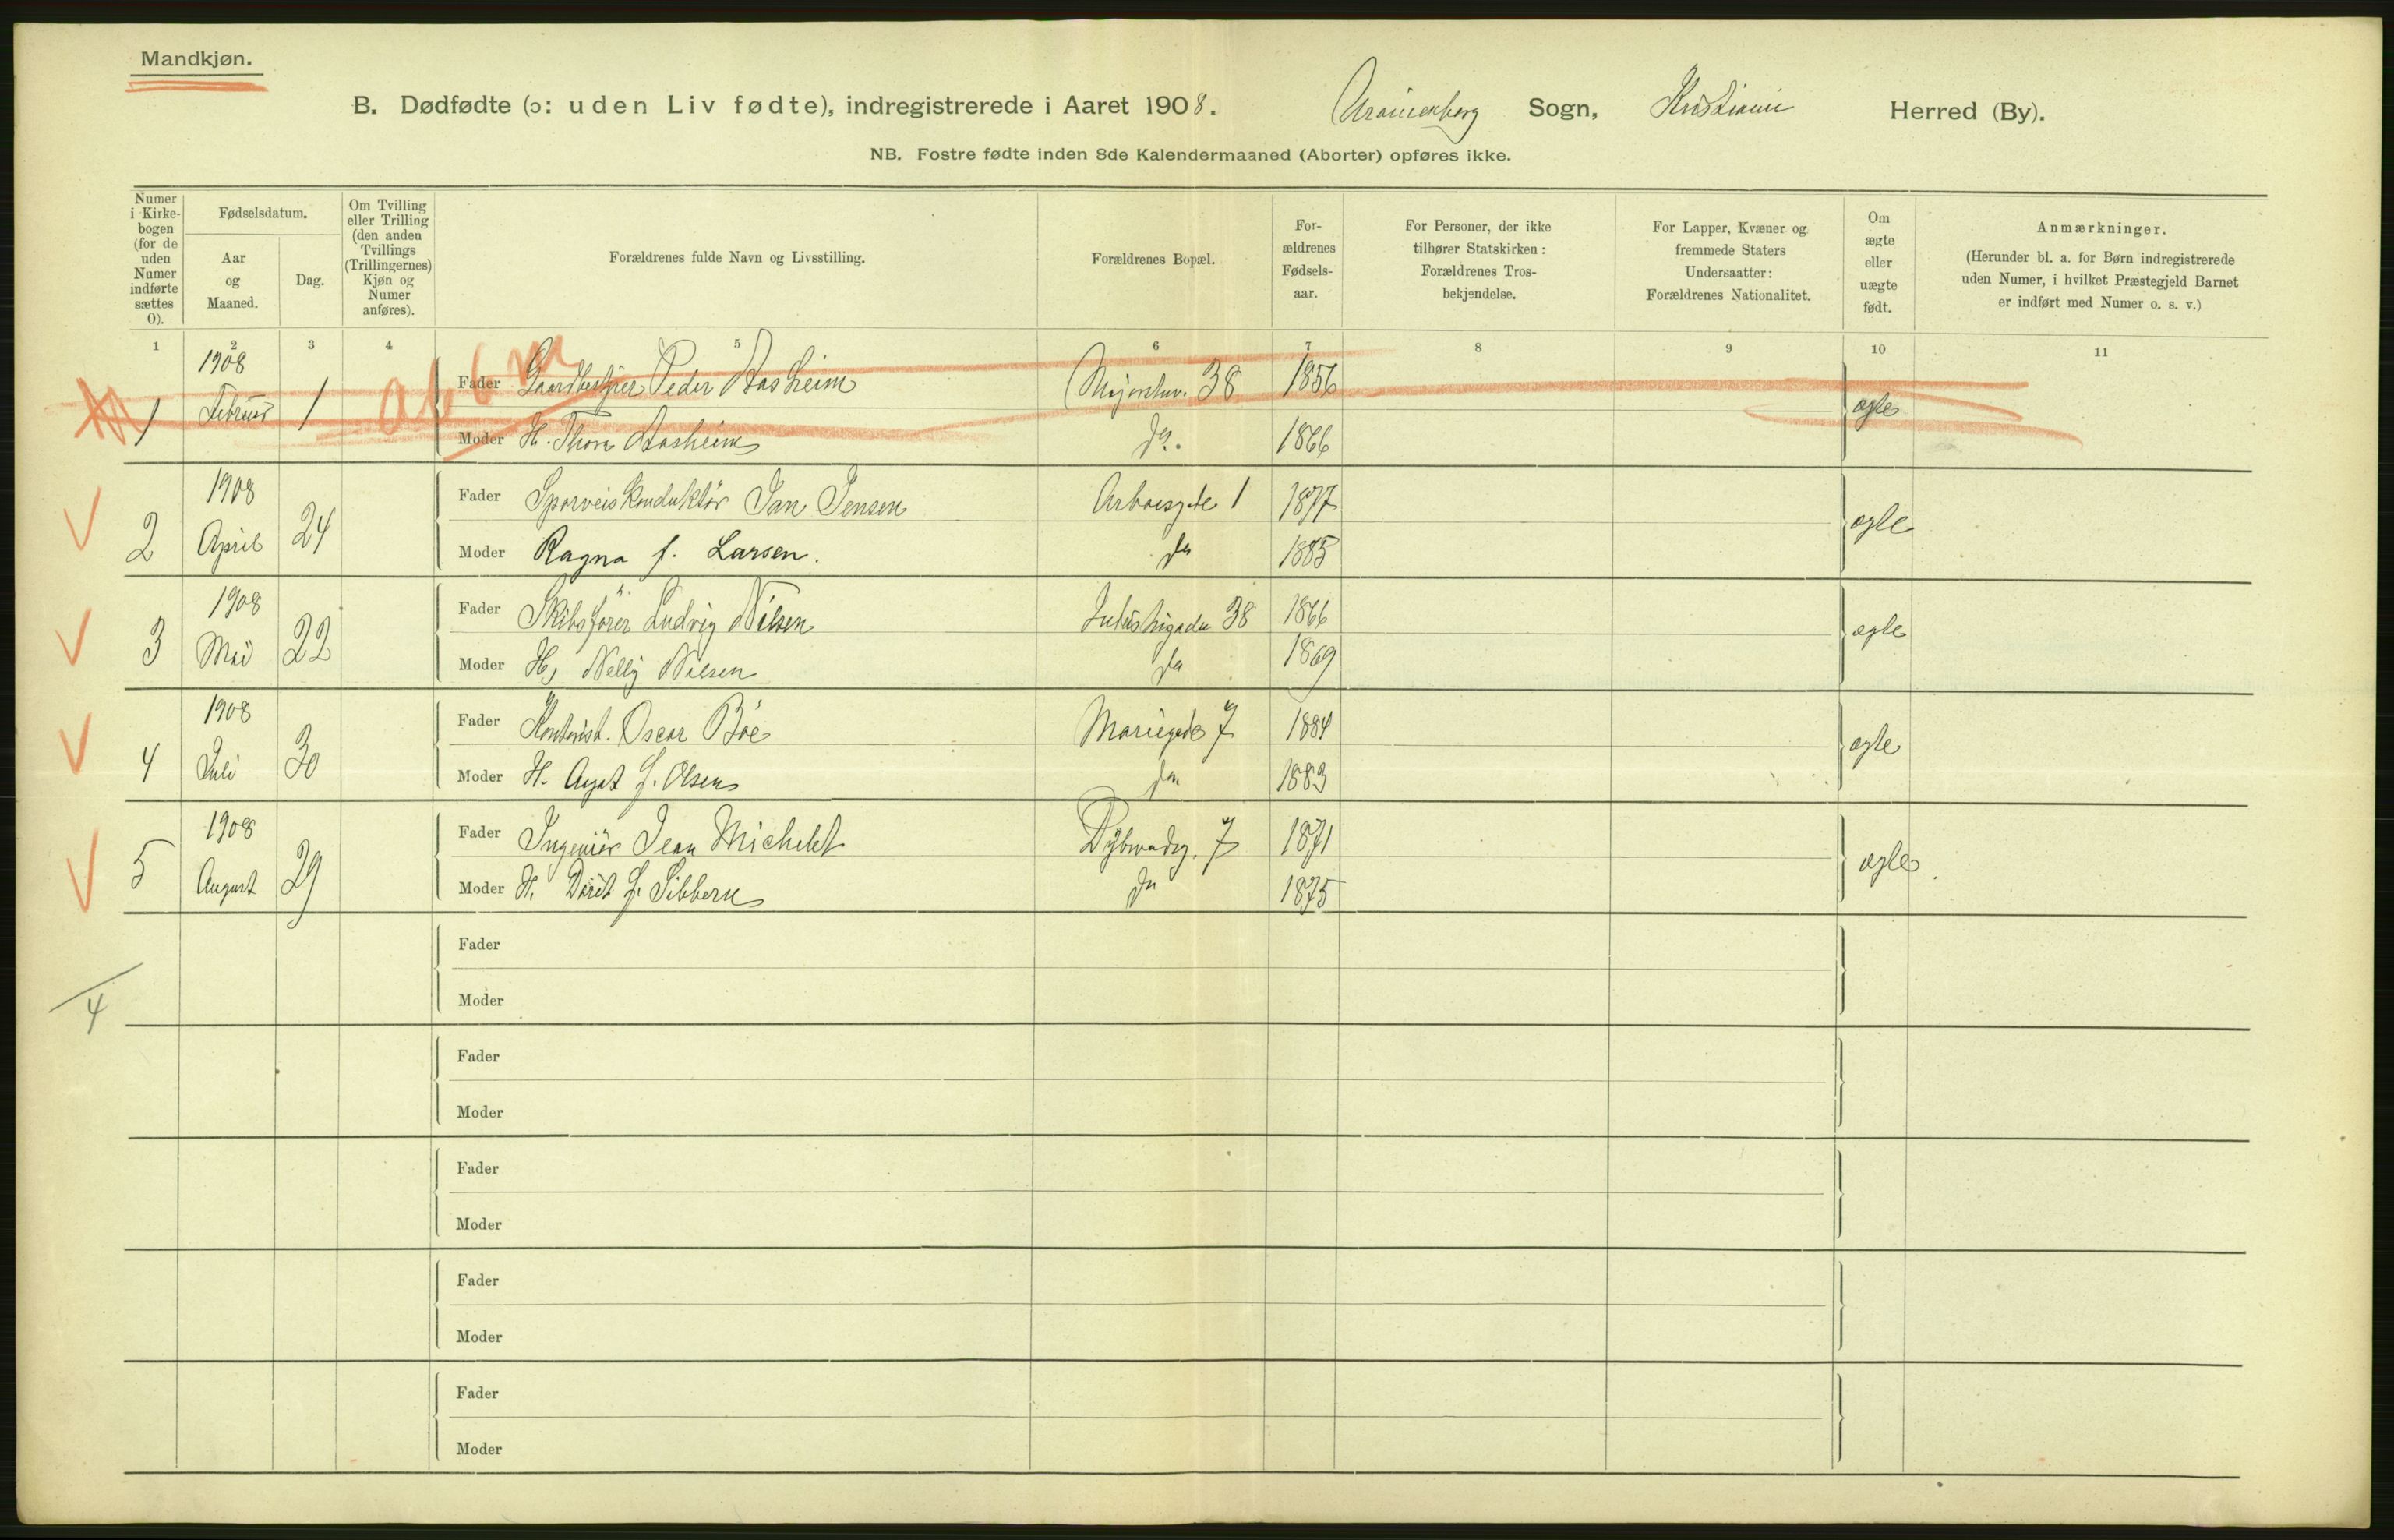 Mandkjøn.
B. Dødfødte (ɔ: uden Liv fødte), indregistrerede i Aaret 1908. Uranienborg Sogn, Kristiania Herred (By).
NB. Fostre fødte inden 8de Kalendermaaned (Aborter) opføres ikke.
Numer i Kirkebogen (for de uden Numer indførte sættes 0).
Fødselsdatum.
Aar og Maaned.
Dag.
Om Tvilling eller Trilling (den anden Tvillings (Trillingernes) Kjøn og Numer anføres).
Forældrenes fulde Navn og Livsstilling.
Forældrenes Bopæl.
For-ældrenes Fødsels-aar.
For Personer, der ikke tilhører Statskirken: Forældrenes Tros-bekjendelse.
For Lapper, Kvæner og fremmede Staters Undersaatter: Forældrenes Nationalitet.
Om ægte eller uægte født.
Anmærkninger.
(Herunder bl. a. for Børn indregistrerede uden Numer, i hvilket Præstegjeld Barnet er indført med Numer o. s. v.)
1 2 3 4 5 6 7 8 9 10 11
1908
1 Februar 1 Fader Gaardbestyrer Peder Aasheim 38 1856 ægte
Moder H. Thora Aasheim do. 1866
1908
2 April 24 Fader Sporveiskonduktör Jan Jensen Arboesgate 1 1877 ægte
Moder Ragna f. Larsen. do 1885
1908
3 Mai 22 Fader Skibsfører Ludvig Nilsen 38 1866 ægte
Moder H, Nelly Nilsen do 1869
1908
4 Juli 30 Fader Kontorist. Oscar Böe Mariegade 7 1884 ægte
Moder H. f. Olsen do 1883
1908
5 August 29 Fader Ingeniör Jean Michelet Dybwadsg. 7 1871 ægte
Moder H. Dorit f. Sibbern do 1875
Fader
4
Moder
Fader
Moder
Fader
Moder
Fader
Moder
Fader
Moder